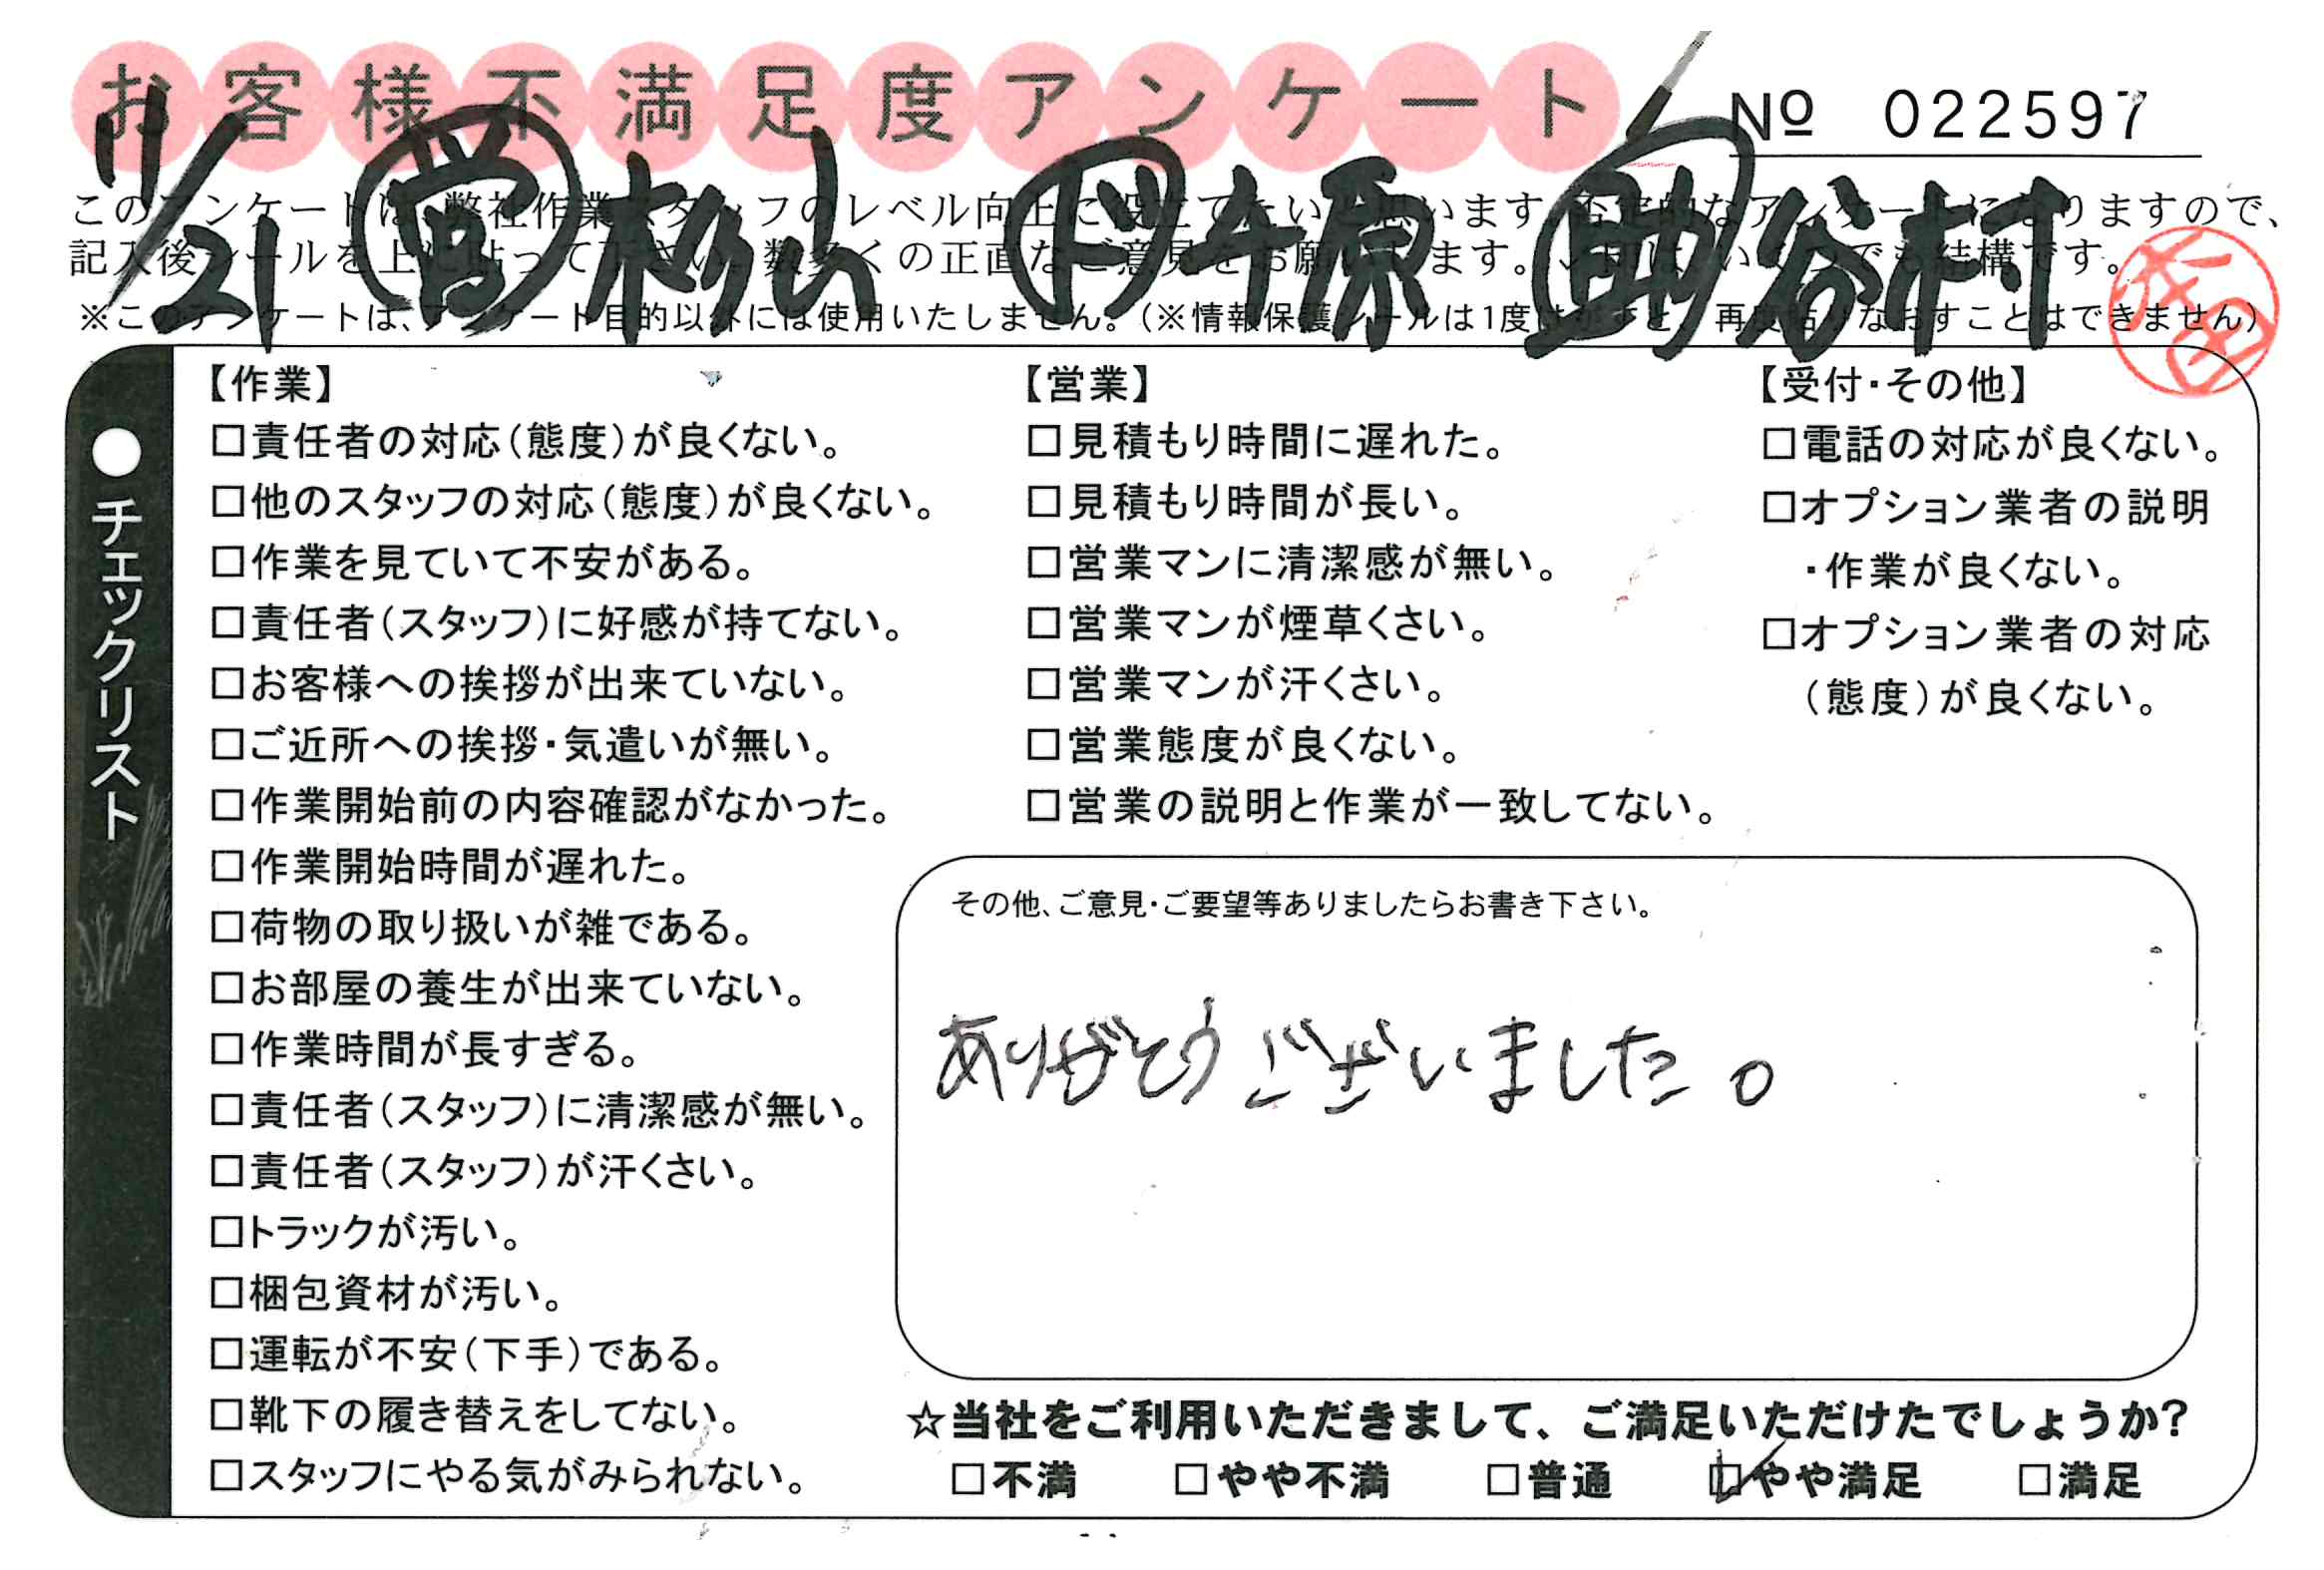 お客様不満足度アンケート
№ 022597
11/21 営 杉山 ド 牛原 助 谷村
このアンケートは、弊社作業スタッフのレベル向上に役立てたいと思います。否定的なアンケートになりますので、
記入後シールを上に貼って下さい。数多くの正直なご意見をお願いします。
※このアンケートは、アンケート目的以外には使用いたしません。（※情報保護シールは1度はがすと、再度貼りなおすことはできません）
●チェックリスト
【作業】
□責任者の対応（態度）が良くない。
□他のスタッフの対応（態度）が良くない。
□作業を見ていて不安がある。
□責任者（スタッフ）に好感が持てない。
□お客様への挨拶が出来ていない。
□ご近所への挨拶・気遣いが無い。
□作業開始前の内容確認がなかった。
□作業開始時間が遅れた。
□荷物の取り扱いが雑である。
□お部屋の養生が出来ていない。
□作業時間が長すぎる。
□責任者（スタッフ）に清潔感が無い。
□責任者（スタッフ）が汗くさい。
□トラックが汚い。
□梱包資材が汚い。
□運転が不安（下手）である。
□靴下の履き替えをしてない。
□スタッフにやる気がみられない。
【営業】
□見積もり時間に遅れた。
□見積もり時間が長い。
□営業マンに清潔感が無い。
□営業マンが煙草くさい。
□営業マンが汗くさい。
□営業態度が良くない。
□営業の説明と作業が一致してない。
【受付・その他】
□電話の対応が良くない。
□オプション業者の説明
・作業が良くない。
□オプション業者の対応
（態度）が良くない。
その他、ご意見・ご要望等ありましたらお書き下さい。
ありがとうございました。
☆当社をご利用いただきまして、ご満足いただけたでしょうか？
□不満 □やや不満 □普通 ☑やや満足 □満足